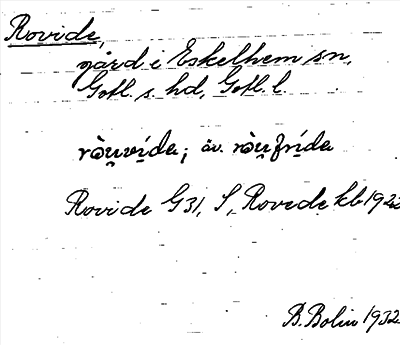 Rovide,
gård i Eskelhem sn,
Gotl. s. hd, Gotl. l.
ròu̯vída; äv. ròu̯frída
Rovide G31, S, Rovede kb 1923
B. Bolin 1932